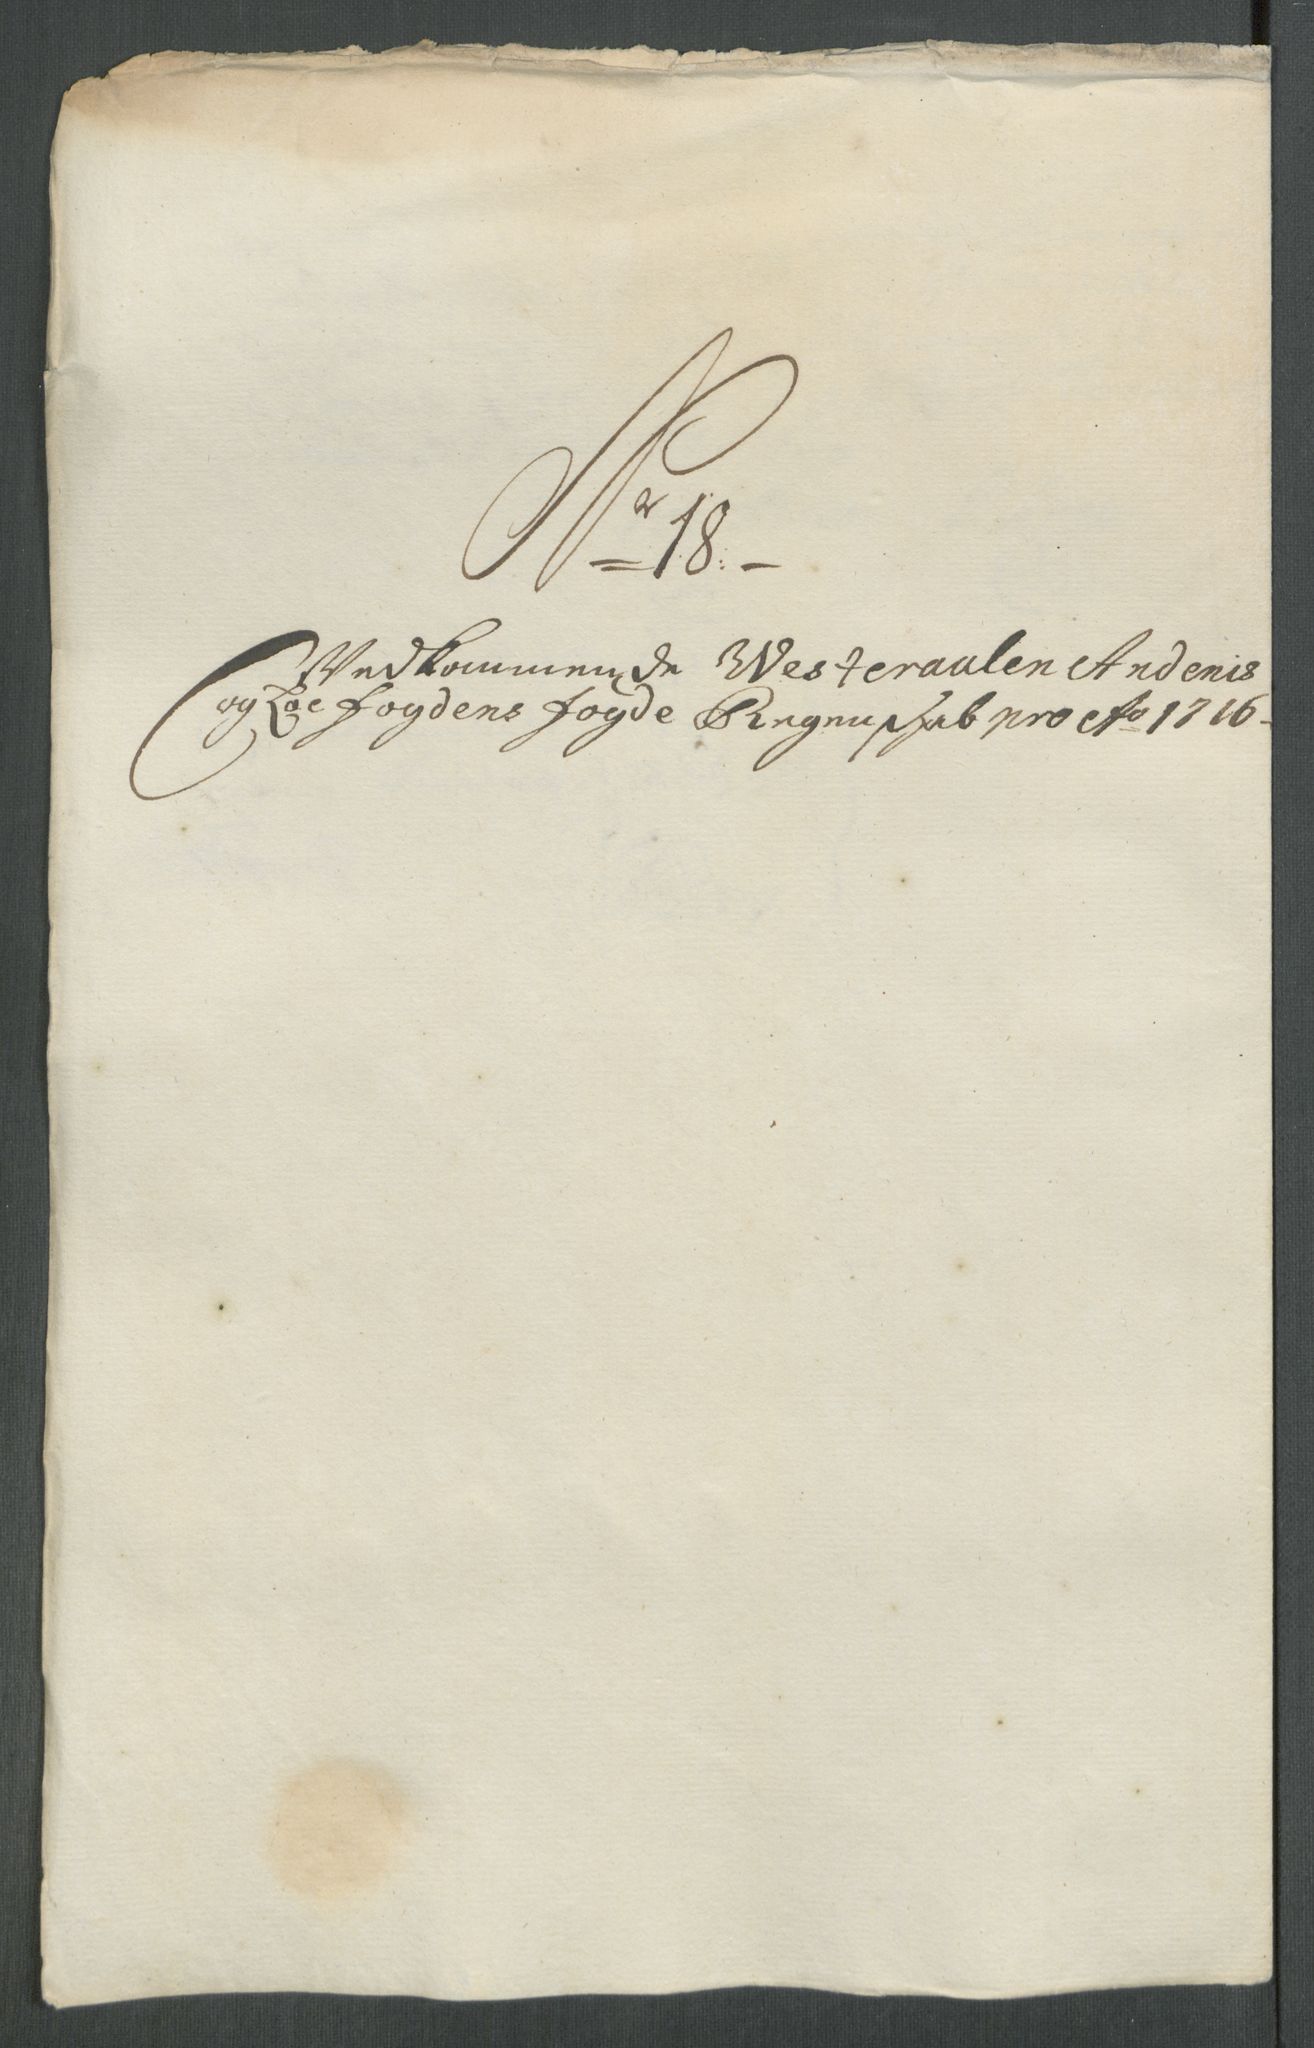 Nr 18.
Vedkommende Westeraalen Andenis
og Loefoydens foyde Regnschab pro Ao 1716